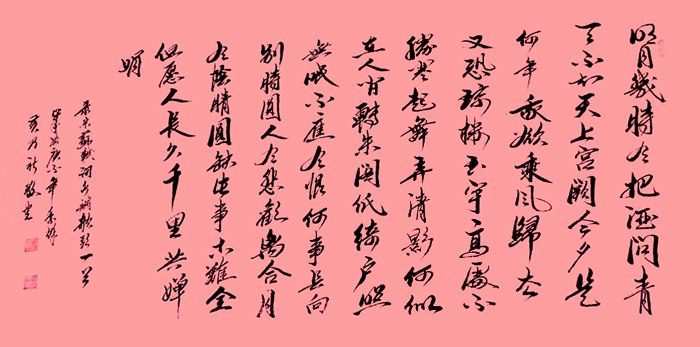 明月幾時有把酒問青
天不知天上宮闕今夕是
何年我欲乘風歸去
又恐瓊樓玉宇高處不
勝寒起舞弄清影何似
在人間轉朱閣低綺戶照
無眠不應有恨何事長向
別時圓人有悲歡離合月
有陰晴圓缺此事古難全
但愿人長久千里共嬋
娟
蘇軾詞水調歌頭一首